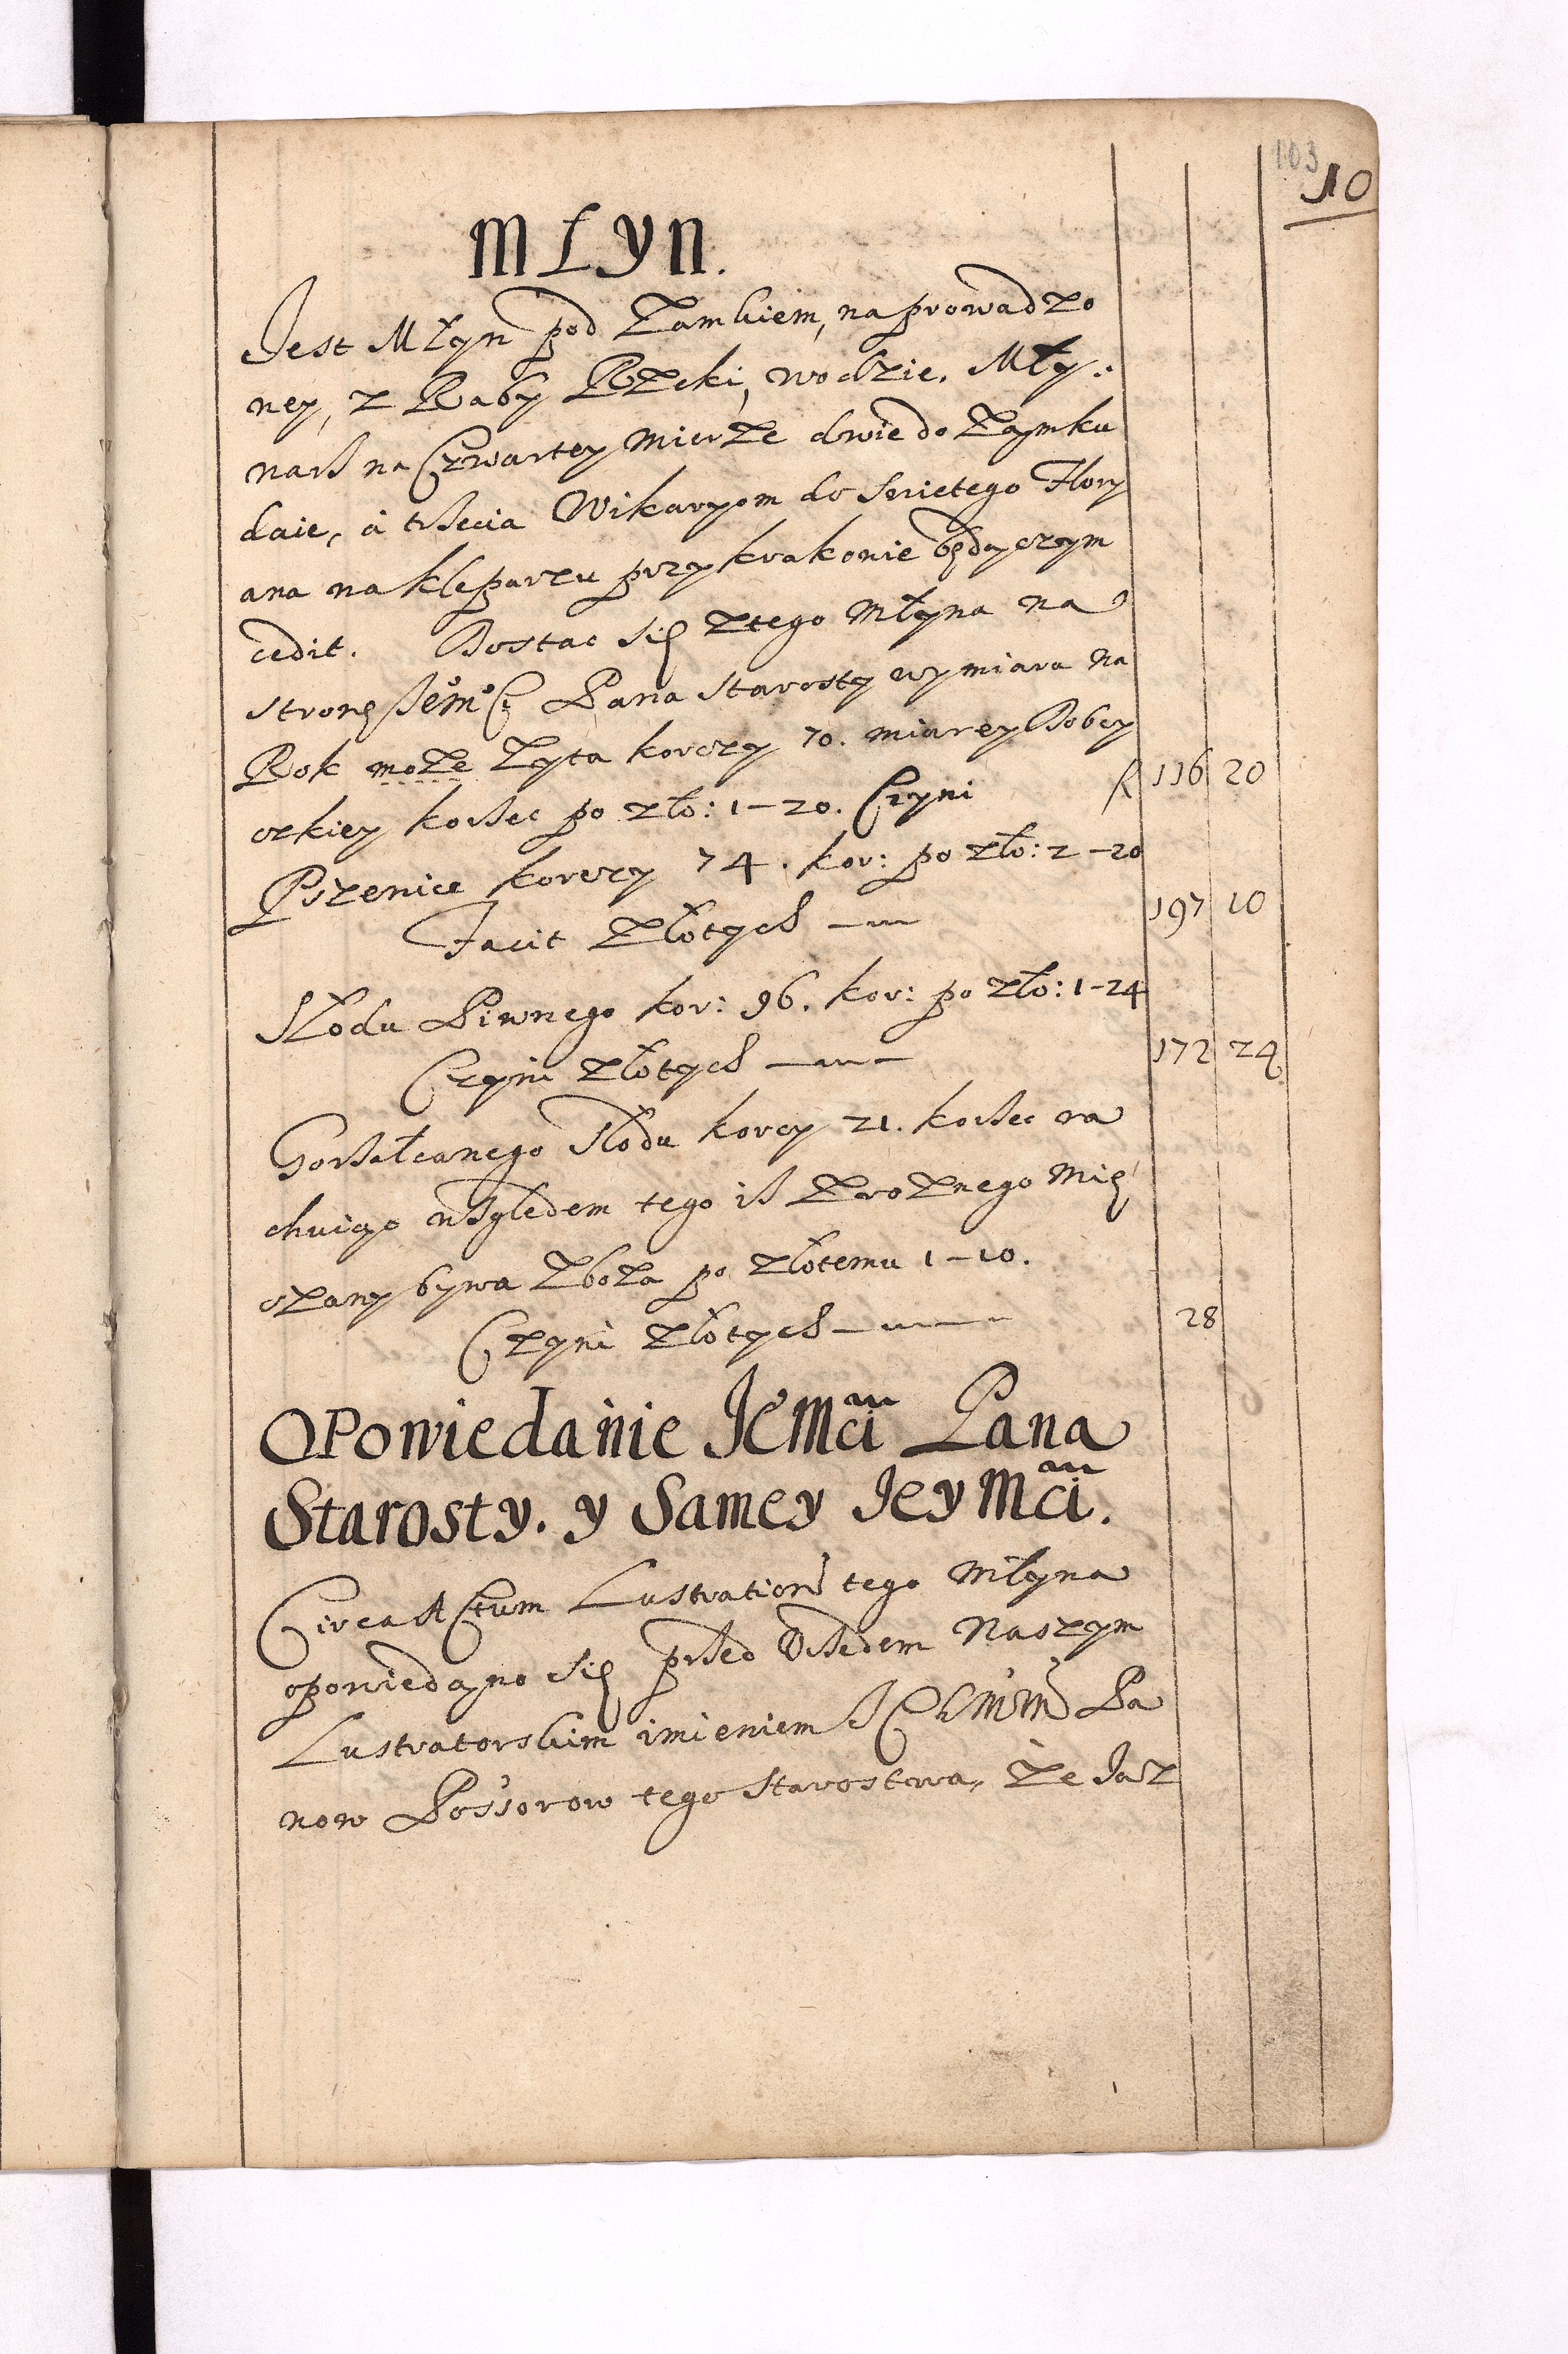 103
10
MŁYN.
Jest Młyn pod Zamkiem, naprowadzo
ney, z Raby Rzeki, wodzie. Mły:
narz na Czwartey Mierze dwie do Zaymku
daie, á trzecia Wikaryom do Swietego Flory
ana na Kleparzu przy krakowie będączym
cedit. Dostac się z tego Młyna na
stronę Jeº Mº Cį Pana Starosty wymiaru na
Rok może Zyta korczy 70. miarey Dobcy
czkiey korzec po zło: 1-20. Czyni f 116 20
Pszenice korczy 74. kor: po zło: 2-20
Facit Złotych 197 10
Słodu Piwnego kor: 96. kor: po zło: 1-24
Czyni złotych 172 24
Gorzałcanego Słodu korcy 21. korzec ra
chuiąc względem tego iż z rożnego Mię
szany bywa zboża po złotemu 1-10.
Czyni złotych 28
OPowiedanie JeMci Pana
Starosty. y Samey JeyMci.
Circa Actum Lustration tego Młyna
opowiedano się przed Vrzędem Naszym
Lustratorskim imieniem Ich Mm Pa
now Possorow tego Starostwa, że Jaz